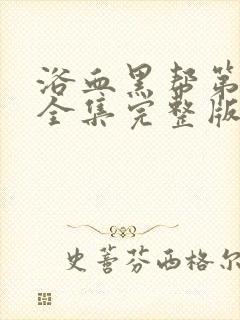 浴血黑帮第
全集完整版
史蒂芬西格尔